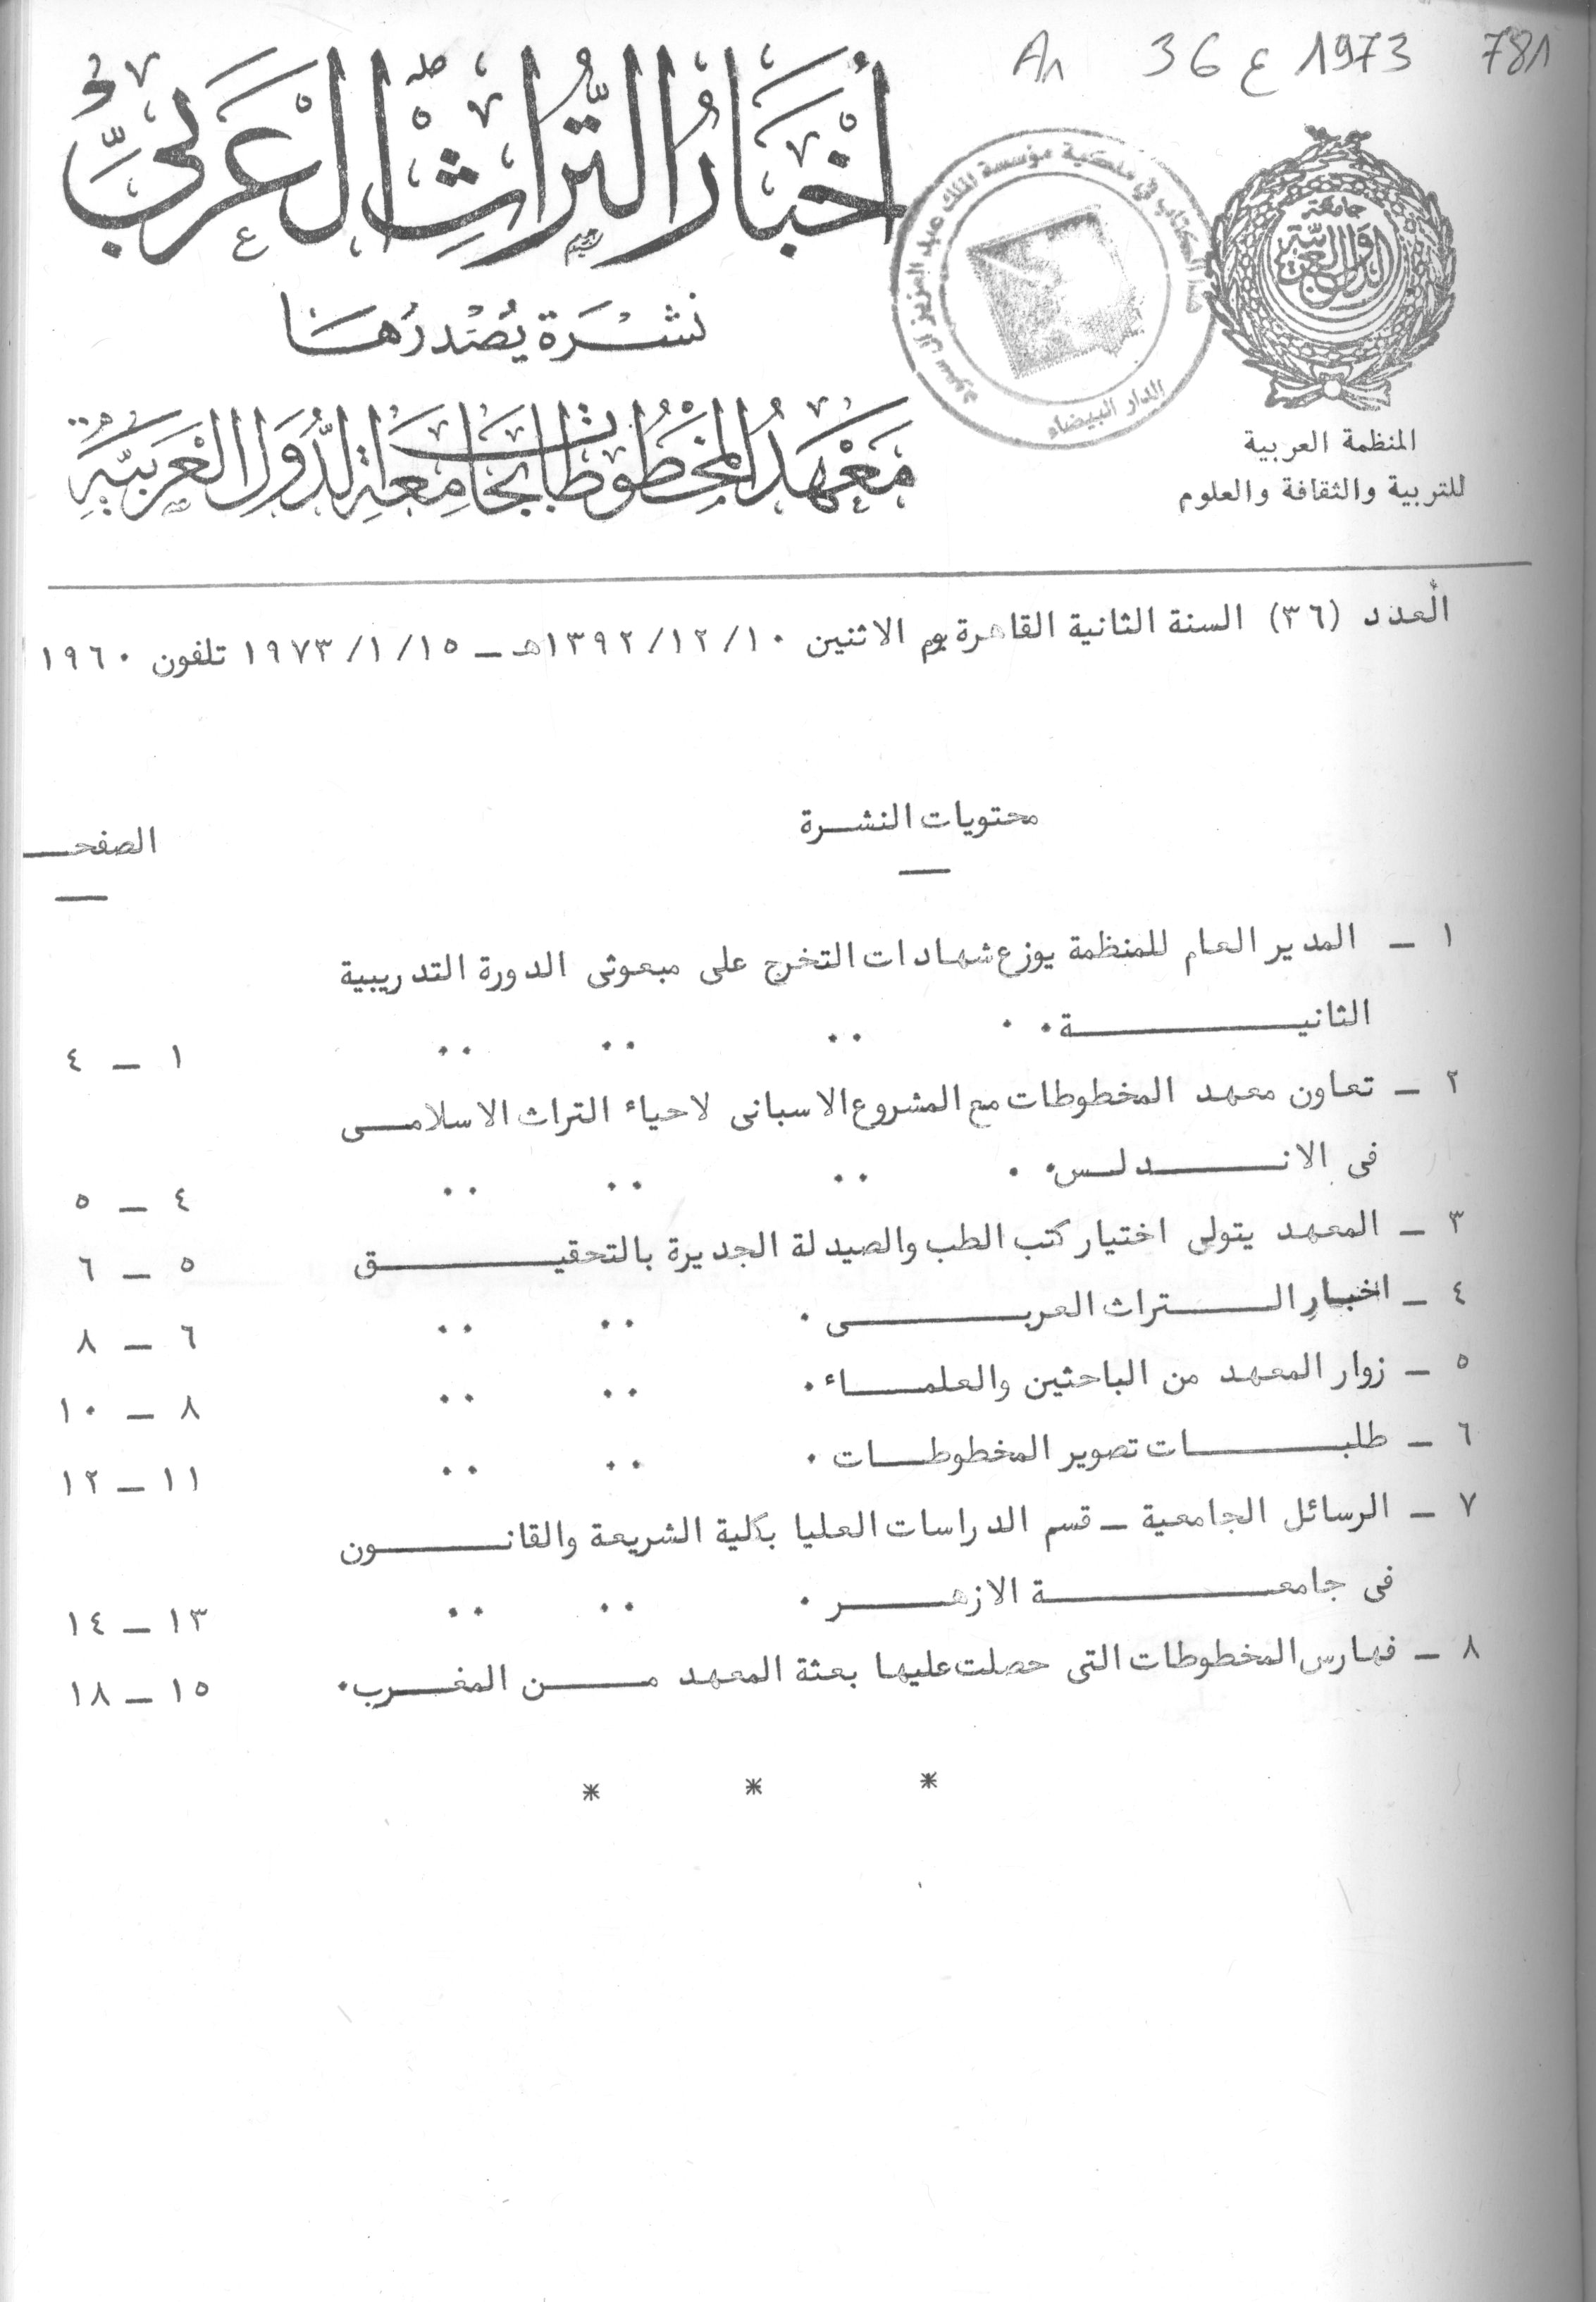 An 36 ع 1973 781
أَخبَارُ التُّرَاثِ العَرَبيِّ
نشرة يصدرها
مَعْهَدُ المَخْطُوطَات بجَامِعَةِ الدُّوَلِ العَرَبيَّةِ
جامعة
الدول العربية
المنظمة العربية
للتربية والثقافة والعلوم
هذا الكتاب في ملكية مؤسسة الملك عبد العزيز آل سعود
الدار البيضاء
العدد (٣٦) السنة الثانية القاهرة يوم الاثنين ١٣٩٢/١٢/١٠هـ ـ ١٩٧٣/١/١٥ تلفون ١٩٦٠
محتويات النشرة
الصفحـ
١ ـ المدير العام للمنظمة يوزع شهادات التخرج على مبعوثى الدورة التدريبية
الثانية ٠ ٠ ٠٠ ٠٠ ٠٠ ١ ـ ٤
٢ ـ تعاون معهد المخطوطات مع المشروع الاسبانى لاحياء التراث الاسلامى
فى الاندلس ٠ ٠ ٠٠ ٠٠ ٠٠ ٤ ـ ٥
٣ ـ المعهد يتولى اختيار كتب الطب والصيدلة الجديرة بالتحقيق ٥ ـ ٦
٤ ـ اخبار التراث العربى ٠ ٠٠ ٠٠ ٦ ـ ٨
٥ ـ زوار المعهد من الباحثين والعلماء ٠ ٠٠ ٠٠ ٨ ـ ١٠
٦ ـ طلبات تصوير المخطوطات ٠ ٠٠ ٠٠ ١١ ـ ١٢
٧ ـ الرسائل الجامعية ـ قسم الدراسات العليا بكلية الشريعة والقانون
فى جامعة الازهر ٠ ٠٠ ٠٠ ١٣ ـ ١٤
٨ ـ فهارس المخطوطات التى حصلت عليها بعثة المعهد من المغرب ٠ ١٥ ـ ١٨
* * *